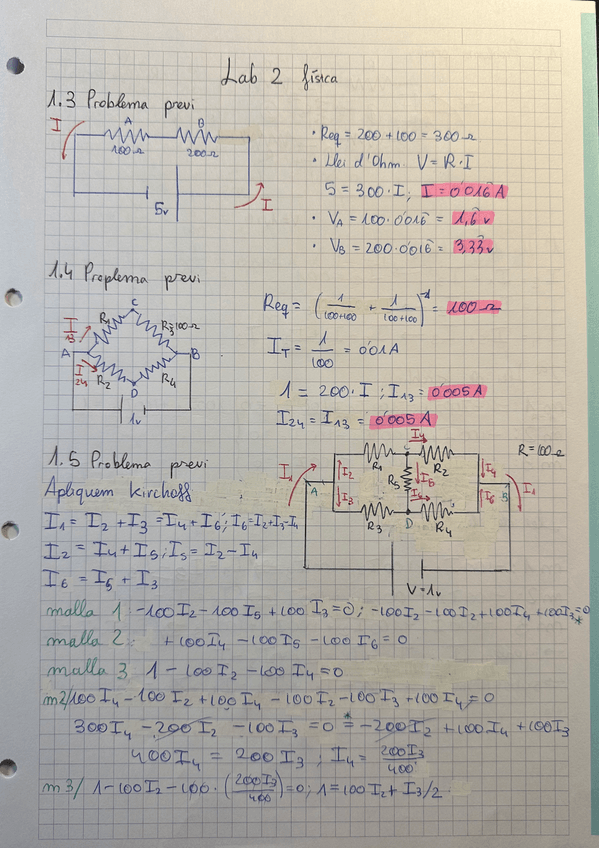 Lab 2 física
1.3 Problema previ
I
A
B
100Ω
200Ω
5v
I
· Req = 200 + 100 = 300 Ω
· Llei d'Ohm V = R · I
5 = 300 · I ; I = 0'016 A
· VA = 100 · 0'016 = 1,6 v
· VB = 200 · 0'016 = 3,33 v
1.4 Proplema previ
C
R1
R3 100Ω
I13
A
B
I24
R2
R4
D
1v
Req = (1/(100+100) + 1/(100+100))^-1 = 100 Ω
IT = 1/100 = 0'01A
1 = 200 · I ; I13 = 0'005 A
I24 = I13 = 0'005 A
1.5 Problema previ
Apliquem Kirchoff
I1 = I2 + I3 = I4 + I6 ; I6 = I2 + I3 - I4
I2 = I4 + I5 ; I5 = I2 - I4
I6 = I5 + I3
I4
R = 100Ω
C
R1
R2
I1
I2
I4
R5
I5
A
B
I1
I3
I6
R3
D
R4
V = 1v
malla 1: -100I2 - 100I5 + 100I3 = 0 ; -100I2 - 100I2 + 100I4 + 100I3 = 0
*
malla 2: +100I4 - 100I5 - 100I6 = 0
malla 3 1 - 100I2 - 100I4 = 0
m2/ 100I4 - 100I2 + 100I4 - 100I2 - 100I3 + 100I4 = 0
300I4 - 200I2 - 100I3 = 0 *= -200I2 + 100I4 + 100I3
400I4 = 200I3 ; I4 = 200I3/400
m3/ 1 - 100I2 - 100 · (200I3/400) = 0 ; 1 = 100I2 + I3/2